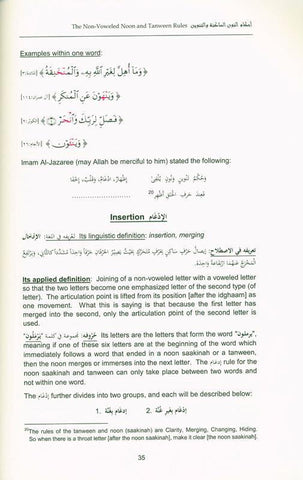 The Non-Voweled Noon and Tanween Rules أحكام النون الساكنة والتنوين
Examples within one word:
﴿ وَمَا أُهِلَّ لِغَيْرِ اللَّهِ بِهِ وَالْمُنْخَنِقَةُ ﴾ [المائدة:٣]
﴿ وَيَنْهَوْنَ عَنِ الْمُنكَرِ ﴾ [آل عمران:١٠٤]
﴿ فَصَلِّ لِرَبِّكَ وَانْحَرْ ﴾ [الكوثر:٢]
﴿ وَيَنْئَوْنَ ﴾
Imam Al-Jazaree (may Allah be merciful to him) stated the following:
وَحُكْمُ تَنْوِينٍ وَنُونٍ يُلْفَى إِظْهَارٌ، ادْغَامٌ، وَقَلْبٌ، إِخْفَا
فَعِنْدَ حَرْفِ الْحَلْقِ أَظْهِرْ 20 ..............................
Insertion الإِدْغَام
تعريفه في اللغة: Its linguistic definition: insertion, merging الإِدْخَال
تعريفه في الاصطلاح: إيصال حَرْفٍ ساكنٍ بِحَرْفٍ مُتَحَرِّكٍ بحيثُ يصيرُ الحرفان حرفاً واحداً مشدداً كالثاني، ويرتفع
المخرج عنهما ارتفاعةً واحدةً.
Its applied definition: Joining of a non-voweled letter with a voweled letter
so that the two letters become one emphasized letter of the second type (of
letter). The articulation point is lifted from its position [after the idghaam] as
one movement. What this is saying is that because the first letter has
merged into the second, only the articulation point of the second letter is
used.
حُرُوفُه: مجموعة في كلمة "يَرْمَلُون" Its letters are the letters that form the word "يَرْمَلُون",
meaning if one of these six letters are at the beginning of the word which
immediately follows a word that ended in a noon saakinah or a tanween,
then the noon merges or immerses into the next letter. The إدغام rule for the
noon saakinah and tanween can only take place between two words and
not within one word.
The إدغام further divides into two groups, and each will be described below:
1. إدغام بغُنَّة 2. إدغام بغَيْرِ غُنَّة
20The rules of the tanween and noon (saakinah) are Clarity, Merging, Changing, Hiding.
So when there is a throat letter [after the noon saakinah], make it clear [the noon saakinah].
35